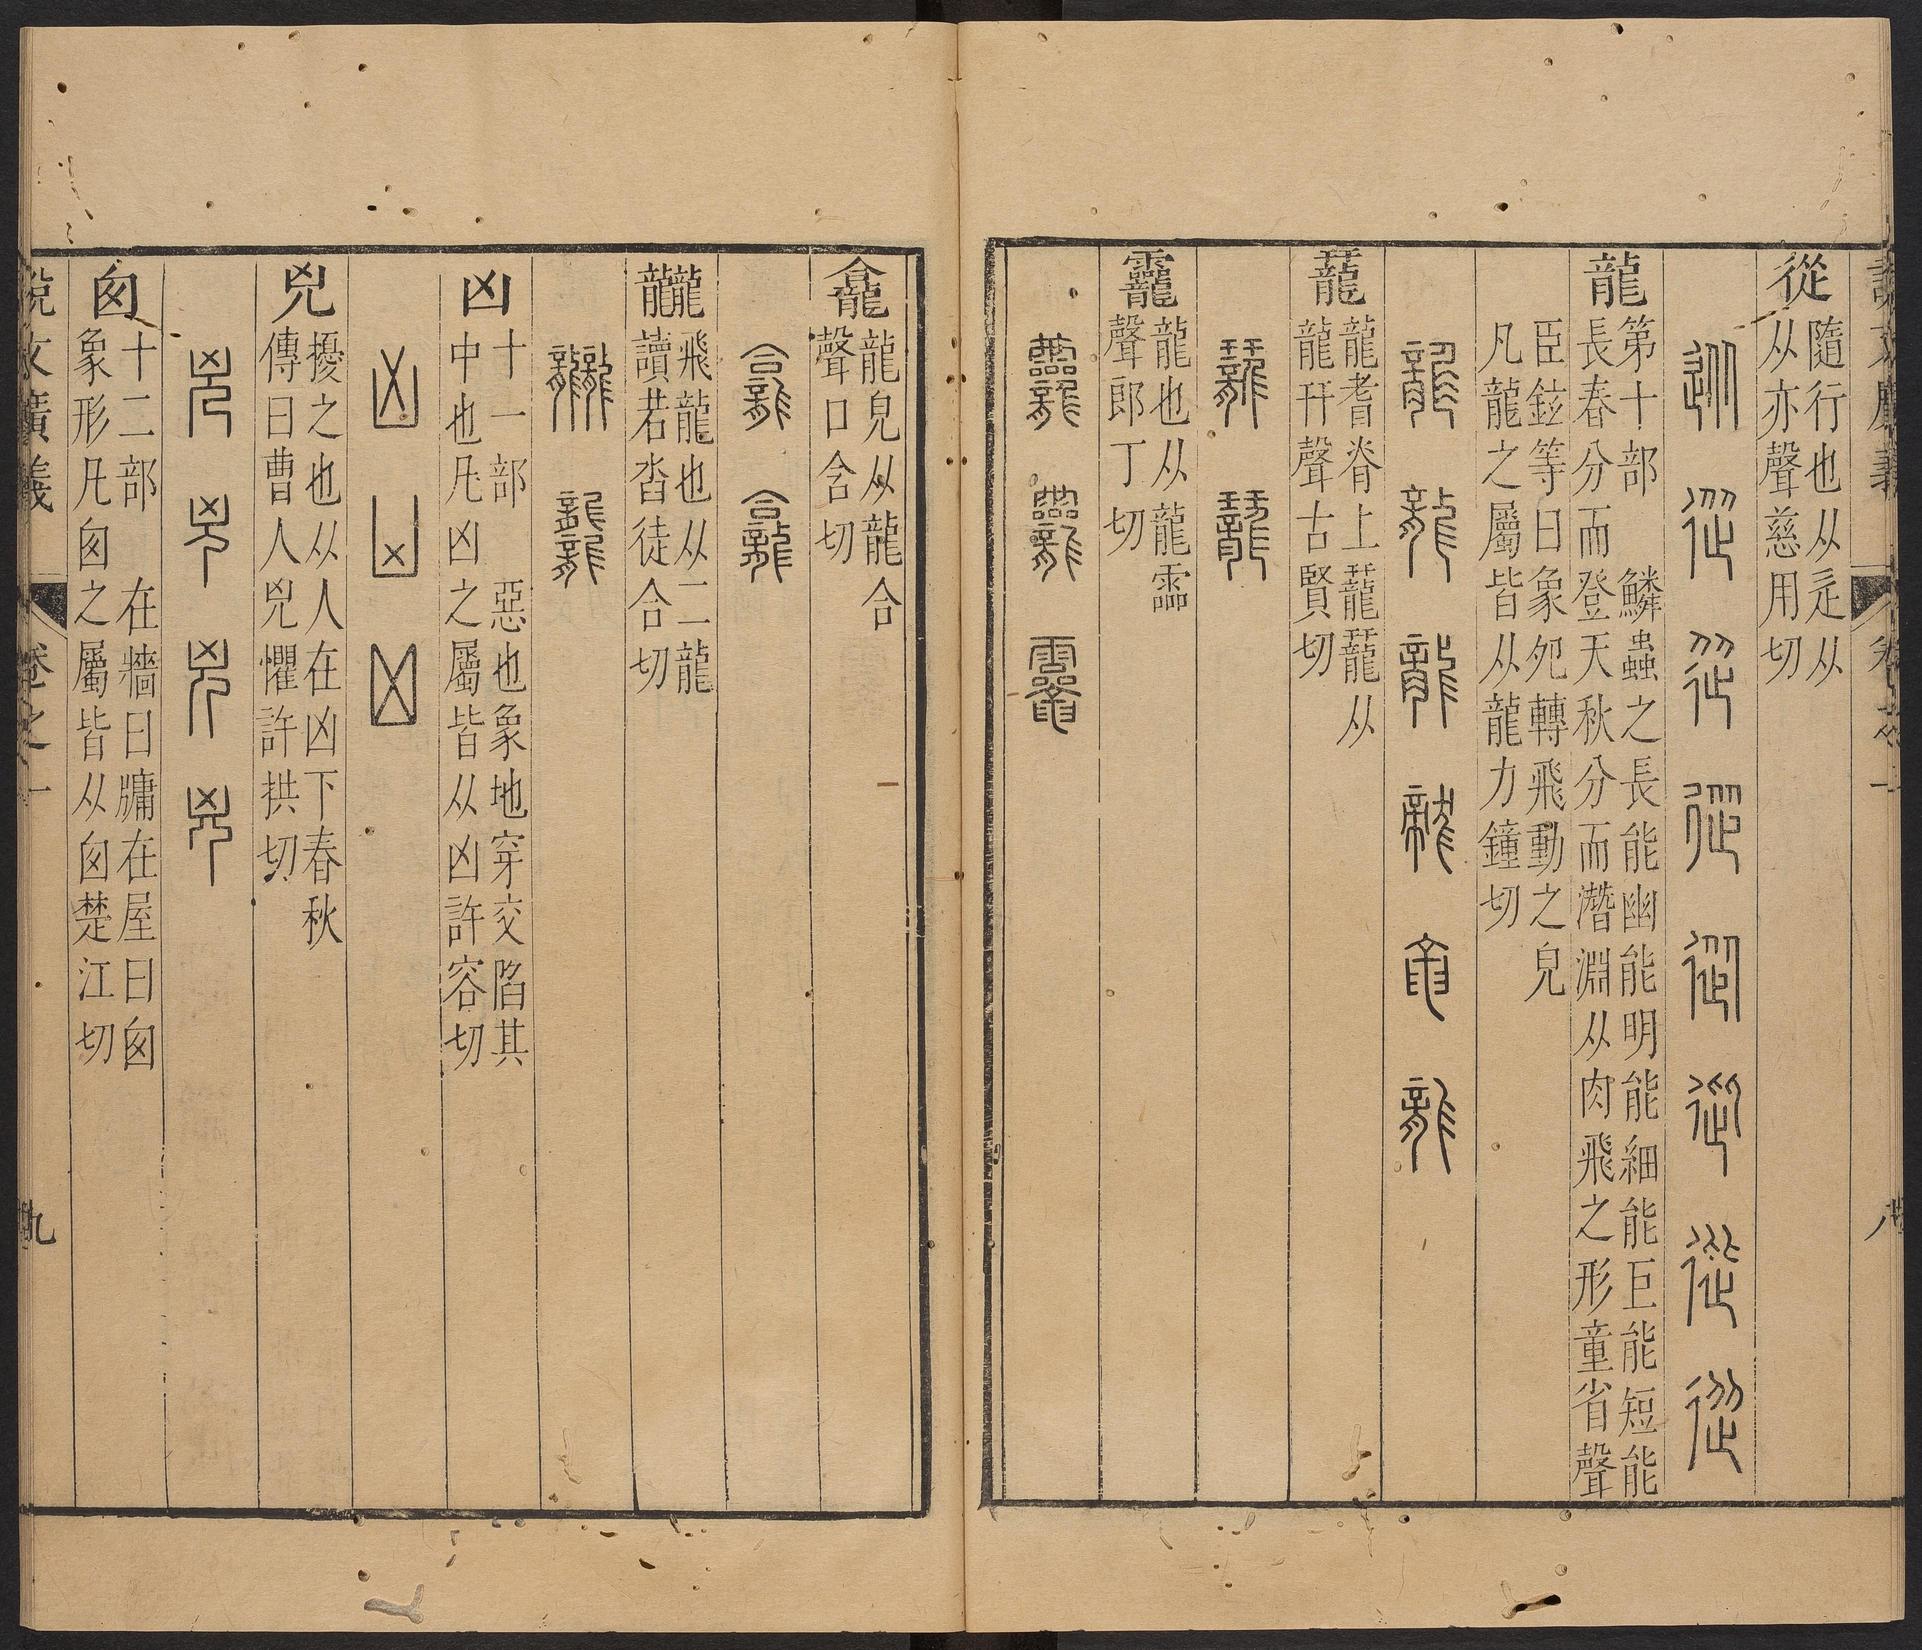 從
隨行也从辵从
从亦聲慈用切
龍
第十部 鱗蟲之長能幽能明能細能巨能短能
長春分而登天秋分而潛淵从肉飛之形童省聲
臣鉉等曰象夗轉飛動之皃
凡龍之屬皆从龍力鐘切
龍 龍 龍 龍 龍
䶬
龍耆脊上䶬䶬从
龍幵聲古賢切
龗
龍也从龍霝
聲郎丁切
龕
龍皃从龍合
聲口含切
龖
飛龍也从二龍
讀若沓徒合切
凶
十一部 惡也象地穿交陷其
中也凡凶之屬皆从凶許容切
兇
擾之也从人在凶下春秋
傳曰曹人兇懼許拱切
囪
十二部 在牆曰牖在屋曰囪
象形凡囪之屬皆从囪楚江切
說文廣義 卷之一 九